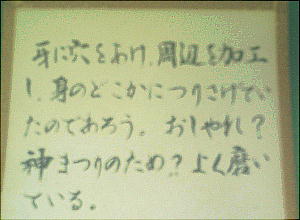 耳に穴をあけ、周辺を加工
し、身のどこかにつりさげてい
たのであろう。おしゃれ？
神まつりのため？よく磨い
ている。